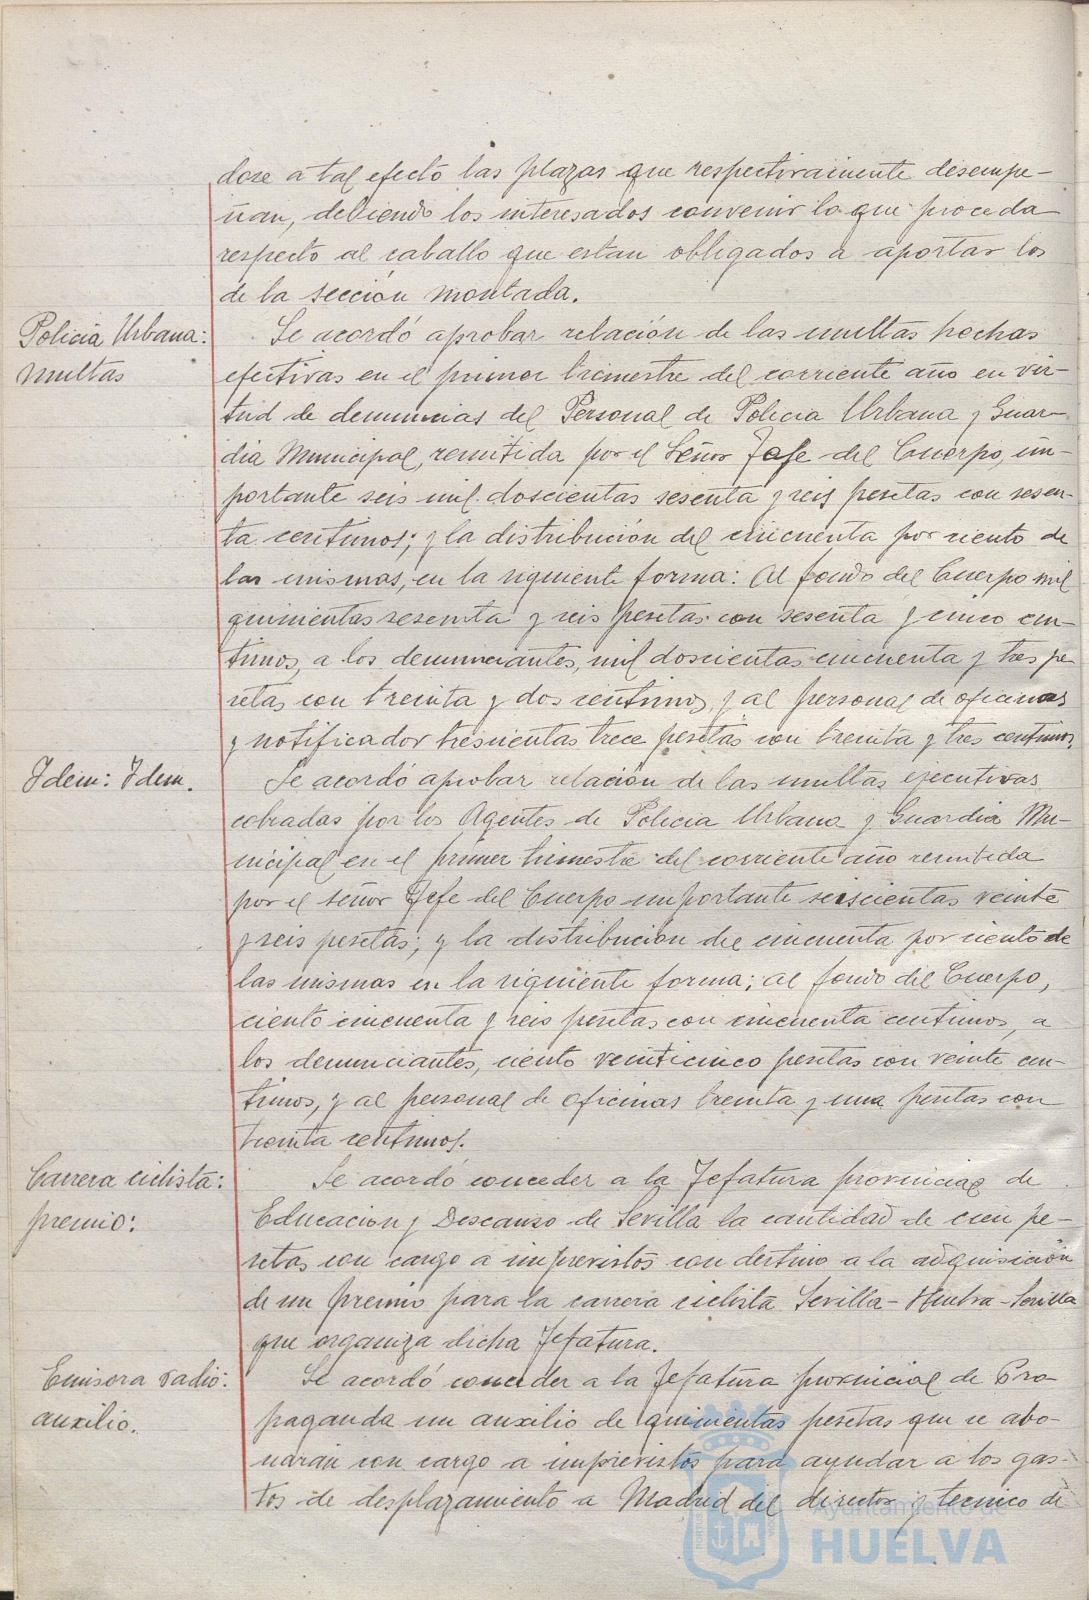 dose a tal efecto las plazas que respectivamente desempe-
ñan, debiendo los interesados convenir lo que proceda
respecto al caballo que estan obligados a aportar los
de la sección montada.
Policía Urbana:
multas
Se acordó aprobar relación de las multas hechas
efectivas en el primer trimestre del corriente año en vir-
tud de denuncias del Personal de Policia Urbana y Guar-
dia Municipal, remitida por el Señor Jefe del Cuerpo, im-
portante seis mil doscientas sesenta y seis pesetas con sesen-
ta centimos; y la distribución del cincuenta por ciento de
las mismas, en la siguiente forma: Al fondo del Cuerpo mil
quinientas sesenta y seis pesetas con sesenta y cinco cen-
timos, a los denunciantes, mil doscientas cincuenta y tres pe
setas con treinta y dos centimos, y al personal de oficinas
y notificador trescientas trece pesetas con treinta y tres centimos.
Idem: Idem.
Se acordó aprobar relación de las multas ejecutivas
cobradas por los Agentes de Policia Urbana y Guardia Mu-
nicipal en el primer trimestre del corriente año remitida
por el señor Jefe del Cuerpo importante seiscientas veinte
y seis pesetas; y la distribución del cincuenta por ciento de
las mismas en la siguiente forma; al fondo del Cuerpo,
ciento cincuenta y seis pesetas con cincuenta centimos, a
los denunciantes, ciento veinticinco pesetas con veinte cen-
timos, y al personal de oficinas treinta y una pesetas con
treinta centimos.
Carrera ciclista:
premio:
Se acordó conceder a la Jefatura provincial de
Educacion y Descanso de Sevilla la cantidad de cien pe-
setas con cargo a imprevistos con destino a la adquisición
de un premio para la carrera ciclista Sevilla-Huelva-Sevilla
que organiza dicha Jefatura.
Emisora radio:
auxilio.
Se acordó conceder a la Jefatura provincial de Pro-
paganda un auxilio de quinientas pesetas que se abo-
narán con cargo a imprevistos para ayudar a los gas-
tos de desplazamiento a Madrid del director y tecnico de
Ayuntamiento de
HUELVA